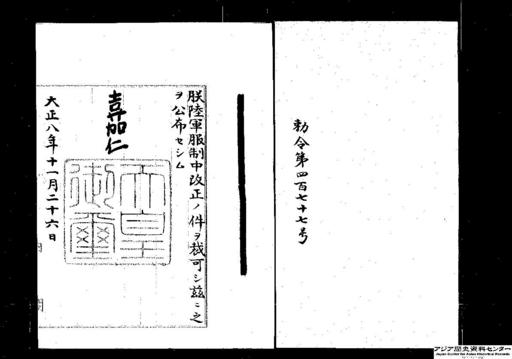 勅令第四百七十七号
朕陸軍服制中改正ノ件ヲ裁可シ茲ニ之
ヲ公布セシム
嘉仁
天皇
御璽
大正八年十一月二十六日
アジア歴史資料センター
Japan Center for Asian Historical Records